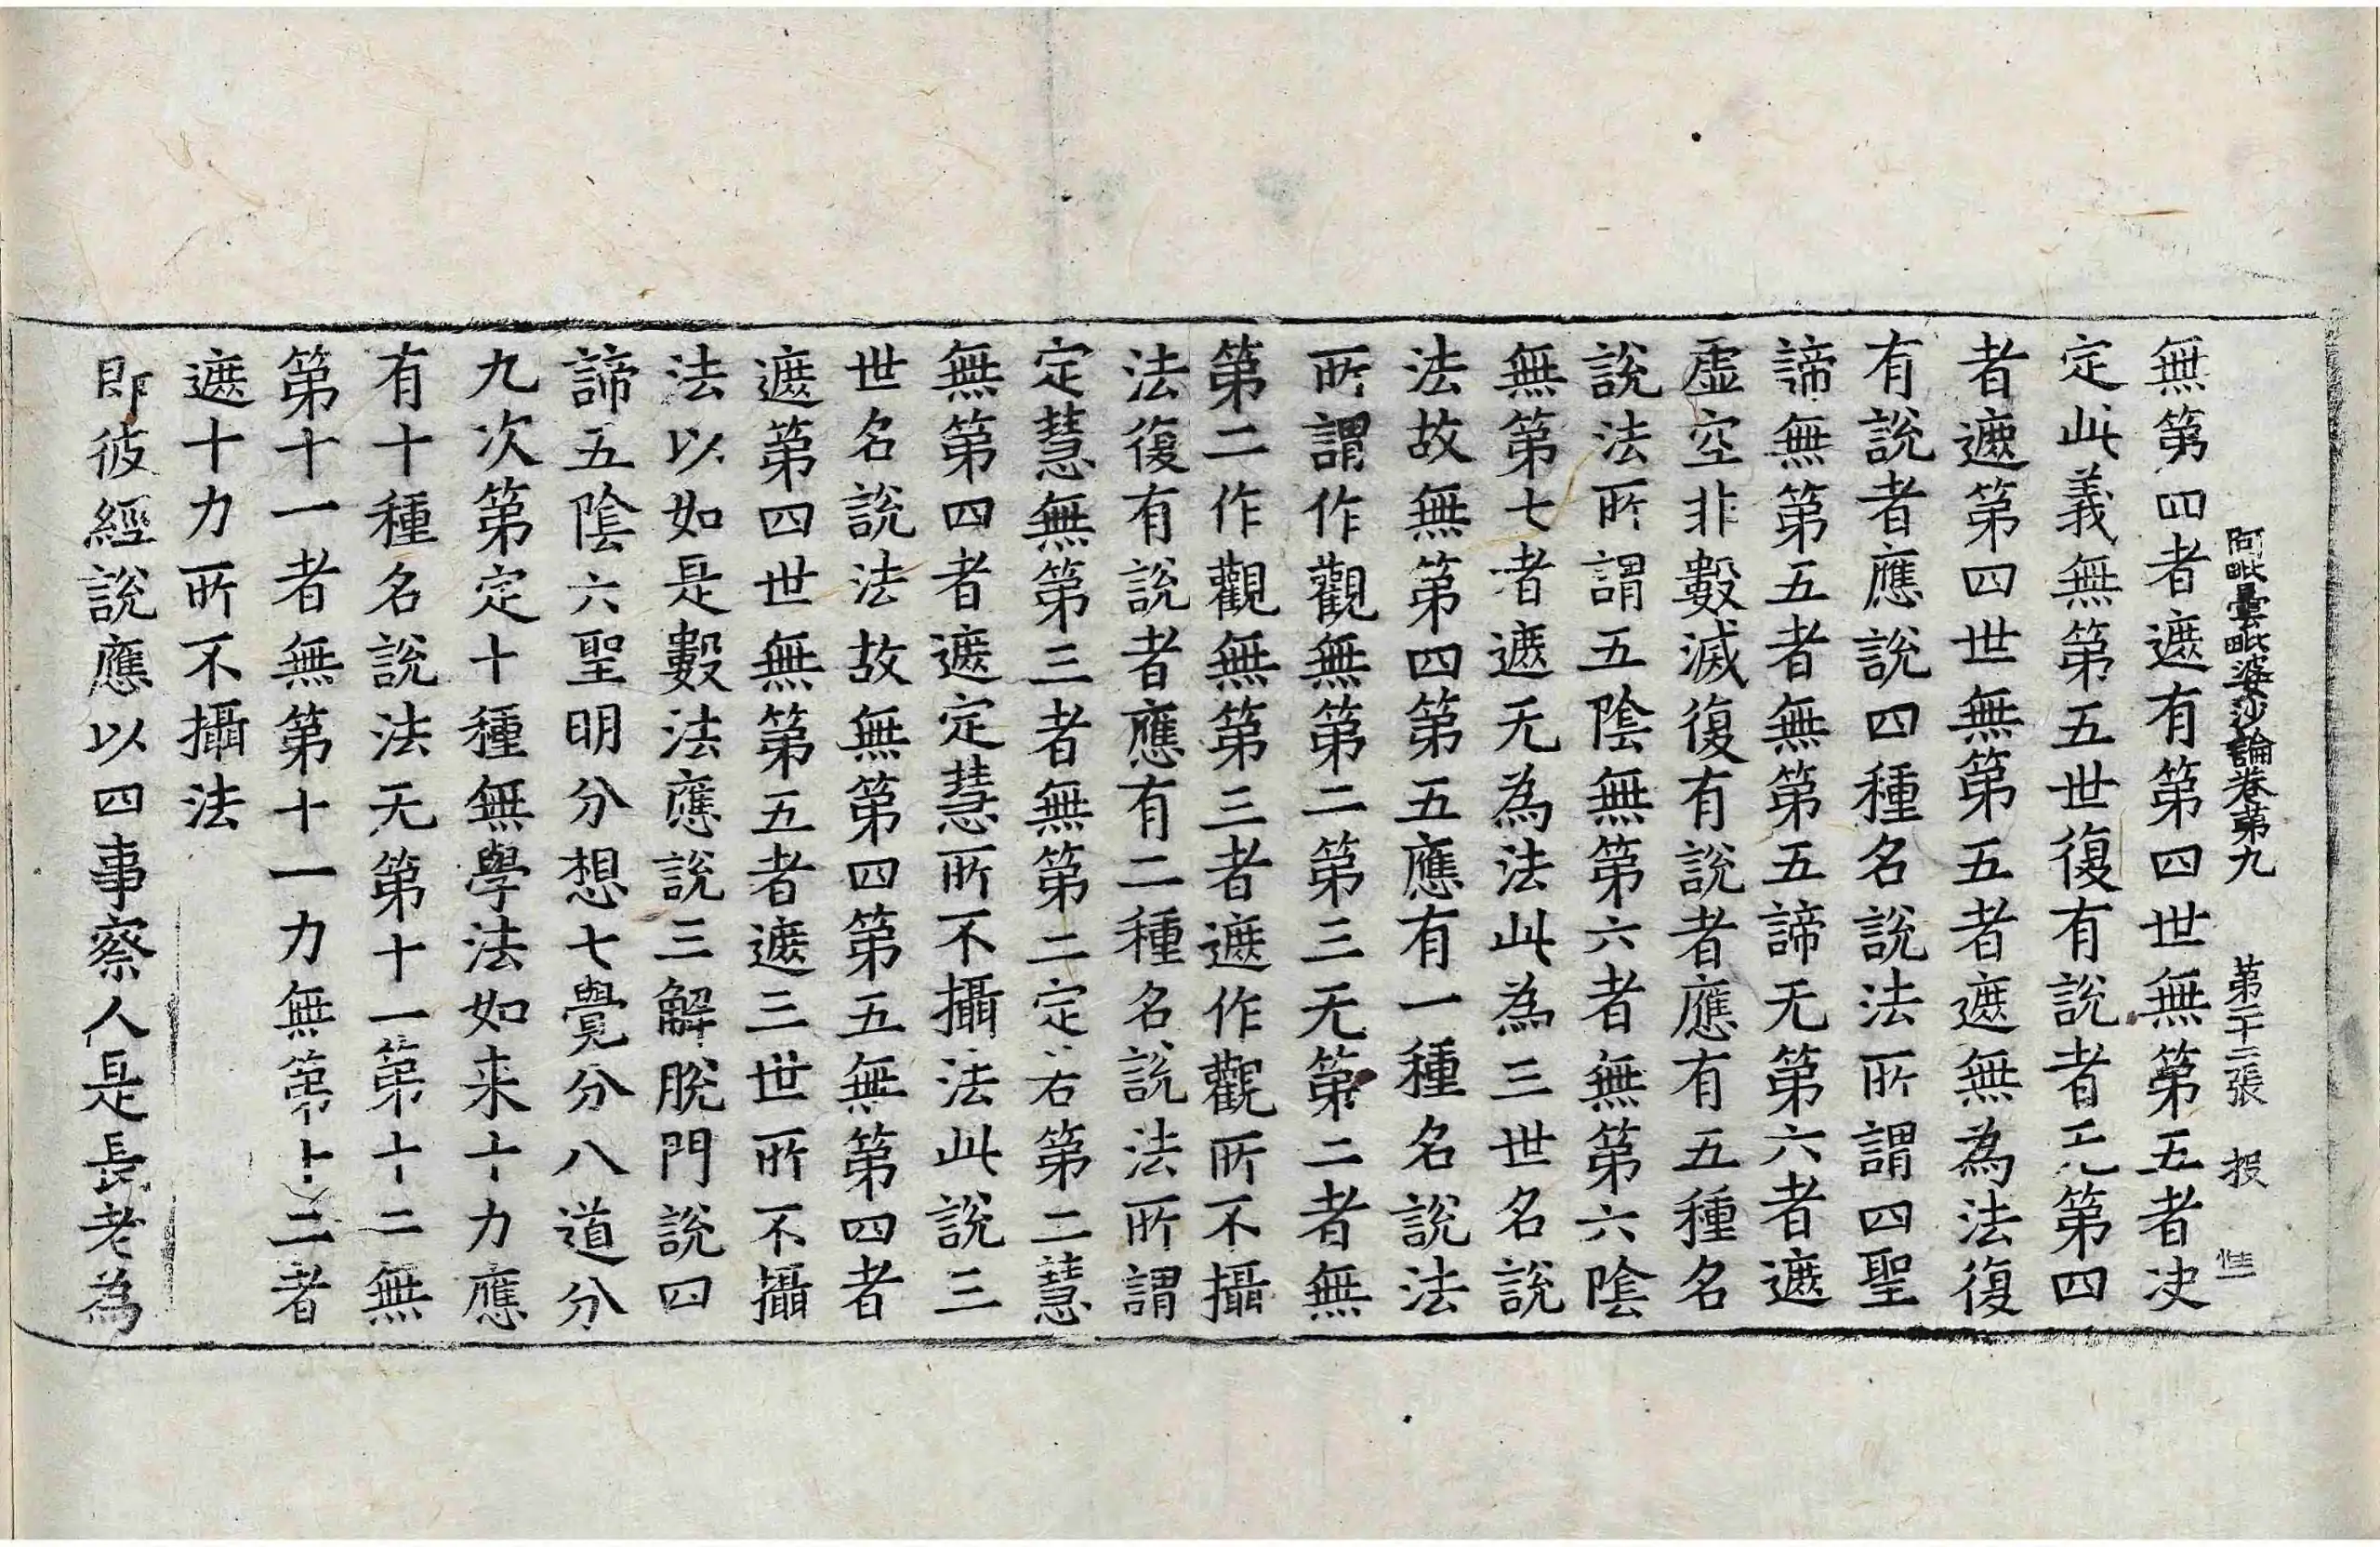 阿毗曇毗婆沙論卷第九 第二十二張 投
無第四者遮有第四世無第五者决
定此義無第五世復有說者无第四
者遮第四世無第五者遮無為法復
有說者應說四種名說法所謂四聖
諦無第五者無第五諦无第六者遮
虛空非數滅復有說者應有五種名
說法所謂五陰無第六者無第六陰
無第七者遮无為法此為三世名說
法故無第四第五應有一種名說法
所謂作觀無第二第三无第二者無
第二作觀無第三者遮作觀所不攝
法復有說者應有二種名說法所謂
定慧無第三者無第二定若第二慧
無第四者遮定慧所不攝法此說三
世名說法故無第四第五無第四者
遮第四世無第五者遮三世所不攝
法以如是數法應說三解脫門說四
諦五陰六聖明分想七覺分八道分
九次第定十種無學法如来十力應
有十種名說法无第十一第十二無
第十一者無第十一力無第十二者
遮十力所不攝法
即彼經說應以四事察人是長老為